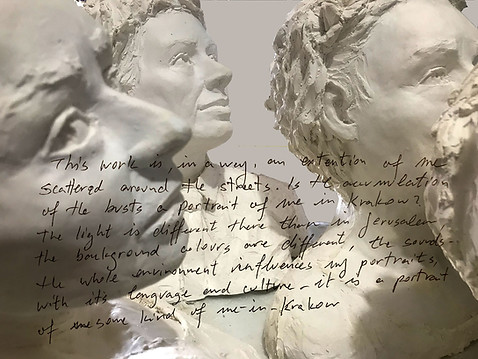 This work is, in a way, an extention of me
scattered around the streets. Is the acumulation
of the busts a portrait of me in Krakow?
The light is different there than in Jerusalem
the background colours are different, the sounds..
the whole environment influences my portraits,
with its language and culture - it is a portrait
of me some kind of me-in-Krakow